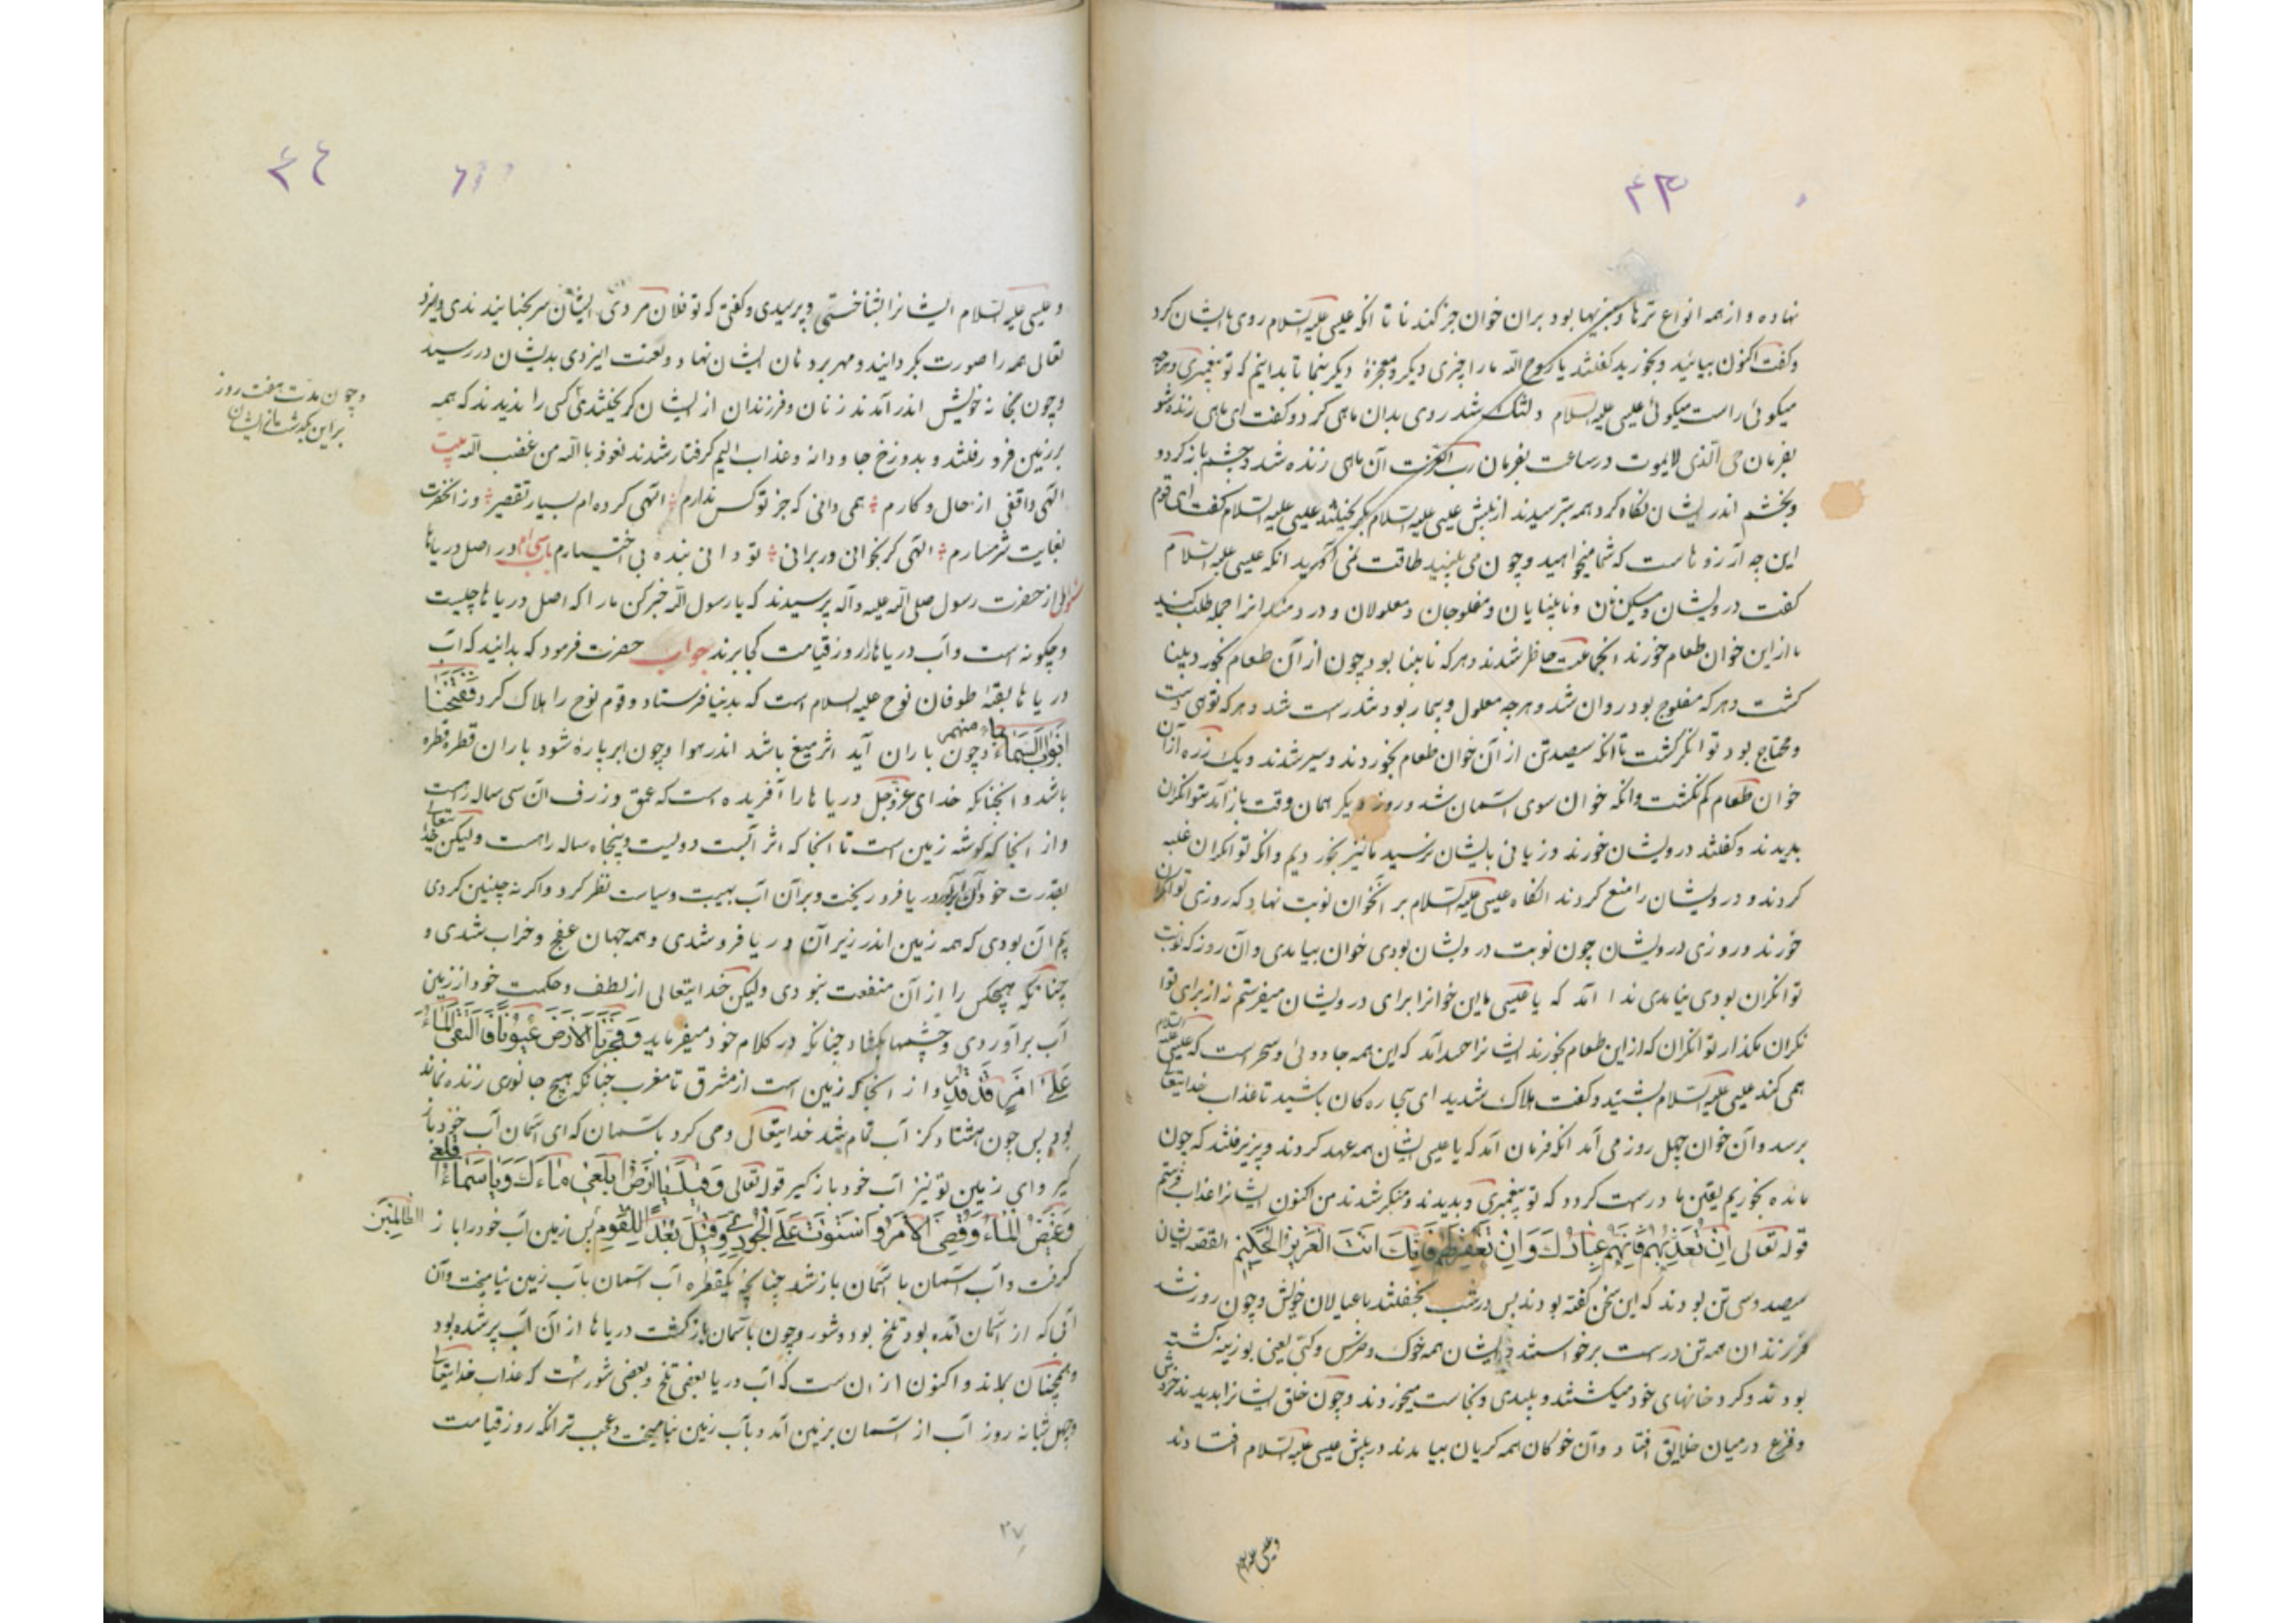 ۴۳
نهاده و از همه انواع ترها و سبزیها بود بران خوان جز کندنا تا انکه عیسی علیه السلام روی بایشان کرد
و کفت اکنون بیائید و بخورید کفتند یا روح الله ما را چیزی دیکر و معجزهٔ دیکر بنما تا بدانیم که تو پیغمبری و هرچه
میکوئی راست میکوئی عیسی علیه السلام دلتنک شد روی بدان ماهی کرد و کفت ای ماهی زنده شو
بفرمان حی الذی لایموت در ساعت بفرمان رب العزت آن ماهی زنده شد و چشم باز کرد و
و بخشم اندر ایشان نکاه کرد همه بترسیدند از پیش عیسی علیه السلام بکریختند عیسی علیه السلام کفت ای قوم
این چه آرزوهاست که شما میخواهید و چون می بینید طاقت نمی آورید انکه عیسی علیه السلام
کفت درویشان و مسکینان و نابینایان و مفلوجان و معلولان و دردمندانرا جمله طلب کنید
تا از این خوان طعام خورند انجماعت حاظر شدند و هر که نابینا بود چون از آن طعام بخورد بینا
کشت و هر که مفلوج بود روان شد و هرچه معلول و بیمار بود تندرست شد و هر که تهی دست
و محتاج بود توانکر کشت تا انکه سیصد تن از آن خوان طعام بخوردند و سیر شدند و یک ذره از آن
خوان طعام کم نکشت وانکه خوان سوی اسمان شد و روز دیکر همان وقت باز آمد توانکران
بدیدند و کفتند درویشان خورند و زیانی بایشان نرسید ما نیز بخوردیم وانکه توانکران غلبه
کردند و درویشان را منع کردند انکاه عیسی علیه السلام بر آنخوان نوبت نهاد که روزی توانکران
خورند و روزی درویشان چون نوبت درویشان بودی خوان بیامدی و آن روز که نوبت
توانکران بودی نیامدی ندا آمد که یا عیسی ما این خوانرا برای درویشان میفرستم نه از برای توا
نکران مکذار توانکران که از این طعام بخورند ایشانرا حسد آمد که این همه جادوئی و سحر است که عیسی علیه السلام
همی کند عیسی علیه السلام بشنید و کفت هلاک شدید ای بیچاره کان باشید تا عذاب خدایتعالی
برسد و آن خوان چهل روز می آمد انکه فرمان آمد که یا عیسی ایشان همه عهد کردند و پزیرفتند که چون
مائده بخوریم یقین ما درست کردد که تو پیغمبری و بدیدند و منکر شدند من اکنون ایشانرا عذاب فرستم
قوله تعالی اِنْ تُعَذِّبْهُمْ فَاِنَّهُمْ عِبَادُكَ وَاِنْ تَغْفِرْ لَهُمْ فَاِنَّكَ اَنْتَ الْعَزِيزُ الْحَكِيمُ القصه ایشان
سیصد و سی تن بودند که این سخن کفته بودند پس در شب بخفتند با عیالان خویش و چون روز شد
فرزندان همه تن درست برخواستند و ایشان همه خوک و خرس و کپی یعنی بوزینه کشته
بودند و کرد خانهای خود میکشتند و پلیدی و نجاست میخوردند و چون خلق ایشانرا بدیدند خروش
و فزع در میان خلایق افتاد و آن خوکان همه کریان بیامدند در پیش عیسی علیه السلام افتادند
و عیسی علیه السلام
۴۴
و عیسی علیه السلام ایشانرا بشناختی و پرسیدی و کفتی که تو فلان مردی ایشان سر بجنبانیدندی و ایزد
تعالی همه را صورت بکردانید و مهر بر دهان ایشان نهاد و لعنت ایزدی بدیشان در رسید
و چون بخانه خویش اندر آمدند زنان و فرزندان از ایشان کریختندی کسی را ندیدند که همه
و چون مدت هفت روز
بر این بکذشت ایشان
بر زمین فرو رفتند و بدوزخ جاودانه و عذاب الیم کرفتار شدند نعوذ بالله من غضب الله بیت
الهی واقفی از حال و کارم همی دانی که جز تو کس ندارم الهی کرده ام بسیار تقصیر وز آنحضرت
بغایت شرمسارم الهی کر بخوانی ور برانی تو دانی بنده بی اختیارم باب سی ام در اصل دریاها
سئوال از حضرت رسول صلی الله علیه وآله پرسیدند که یا رسول الله خبر کن ما را که اصل دریاها چیست
و چکونه است و آب دریاها را روز قیامت کجا برند جواب حضرت فرمود که بدانید که آب
دریاها بقیه طوفان نوح علیه السلام است که بدنیا فرستاد و قوم نوح را هلاک کرد فَفَتَحْنَا
اَبْوَابَ السَّمَاءِ بماء منهمر و چون باران آید اثر میغ باشد اندر هوا و چون ابر پاره شود باران قطره قطره
باشد و انجنانکه خدای عزوجل دریاها را آفریده است که عمق و زرف آن سی ساله راهست
و از انجا که کوشه زمین است تا انجا که اثر آبست دویست و پنجاه ساله راهست ولیکن خدا تعالی
بقدرت خود آن آب در دریا فرو ریخت و بر آن آب بهیبت و سیاست نظر کرد و اکر نه چنین کردی
بیم آن بودی که همه زمین اندر زیر آن دریا فرو شدی و همه جهان و خراب شدی و
چنانکه هیچکس را از آن منفعت نبودی ولیکن خدایتعالی از لطف و حکمت خود از زمین
آب برآوردی و چشمها بکشاد چنانکه در کلام خود میفرماید وَفَجَّرْنَا الْاَرْضَ عُيُونًا فَالْتَقَى الْمَاءُ
عَلَى اَمْرٍ قَدْ قُدِرَ و از انجا که زمین است از مشرق تا مغرب چنانکه هیچ جانوری زنده نماند
بود پس چون هشتاد کز آب تمام شد خدایتعالی وحی کرد باسمان که ای اسمان آب خود باز
کیر و ای زمین تو نیز آب خود باز کیر قوله تعالی وَقِيلَ يَا اَرْضُ ابْلَعِي مَاءَكِ وَيَا سَمَاءُ اَقْلِعِي
وَغِيضَ الْمَاءُ وَقُضِيَ الْاَمْرُ وَاسْتَوَتْ عَلَى الْجُودِيِّ وَقِيلَ بُعْدًا لِلْقَوْمِ الظَّالِمِينَ پس زمین آب خود را باز
کرفت و آب اسمان باسمان باز شد چنانچه یکقطره آب اسمان بآب زمین نیامیخت و آن
آبی که از اسمان آمده بود تلخ بود و شور و چون باسمان باز کشت دریاها از آن آب پر شده بود
و همچنان بماند و اکنون از آن ست که آب دریا بعضی تلخ و بعضی شور است که عذاب خدایتعالی
و چهل شبانه روز آب از اسمان بزمین آمد و بآب زمین نیامیخت و عجب تر انکه روز قیامت
۲۷